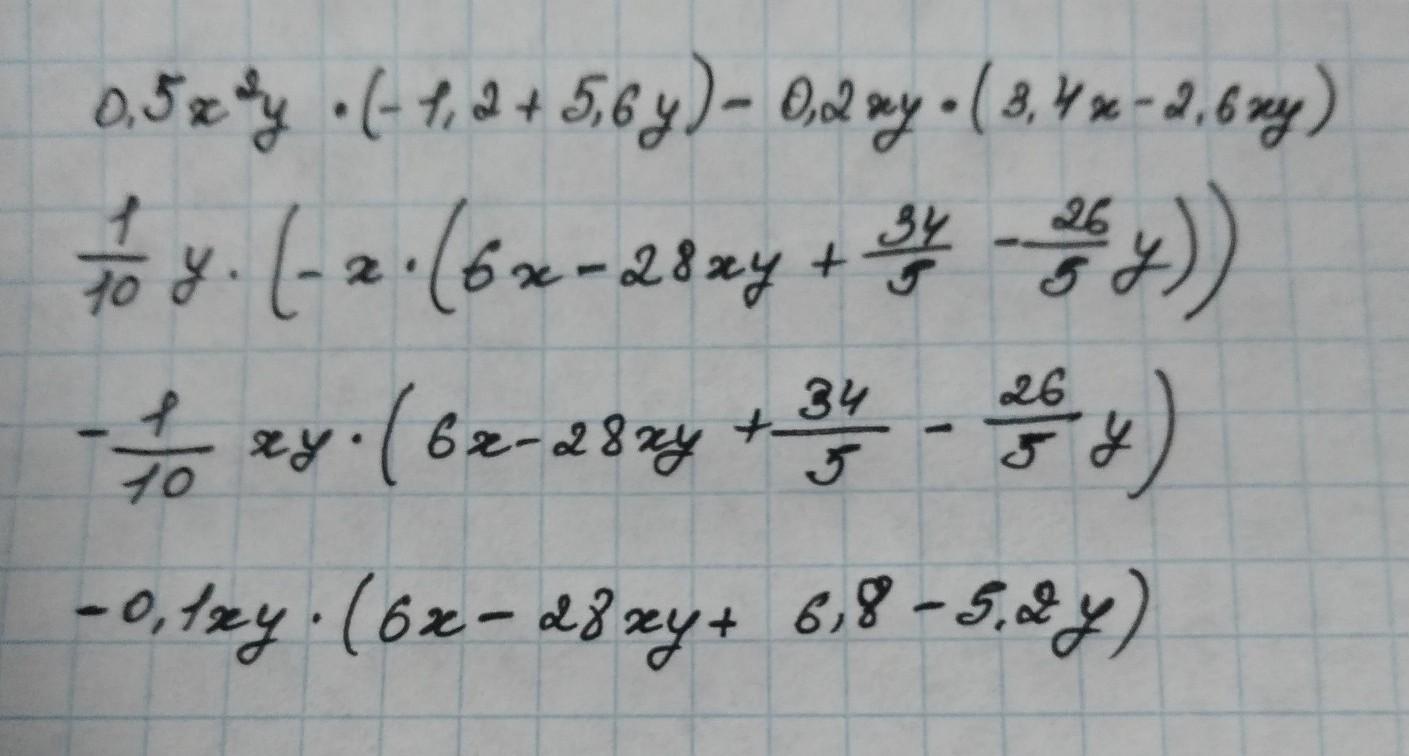 0,5x²y · (-1,2 + 5,6y) - 0,2xy · (3,4x - 2,6xy)
1/10 y · (-x · (6x - 28xy + 34/5 - 26/5 y))
-1/10 xy · (6x - 28xy + 34/5 - 26/5 y)
-0,1xy · (6x - 28xy + 6,8 - 5,2y)